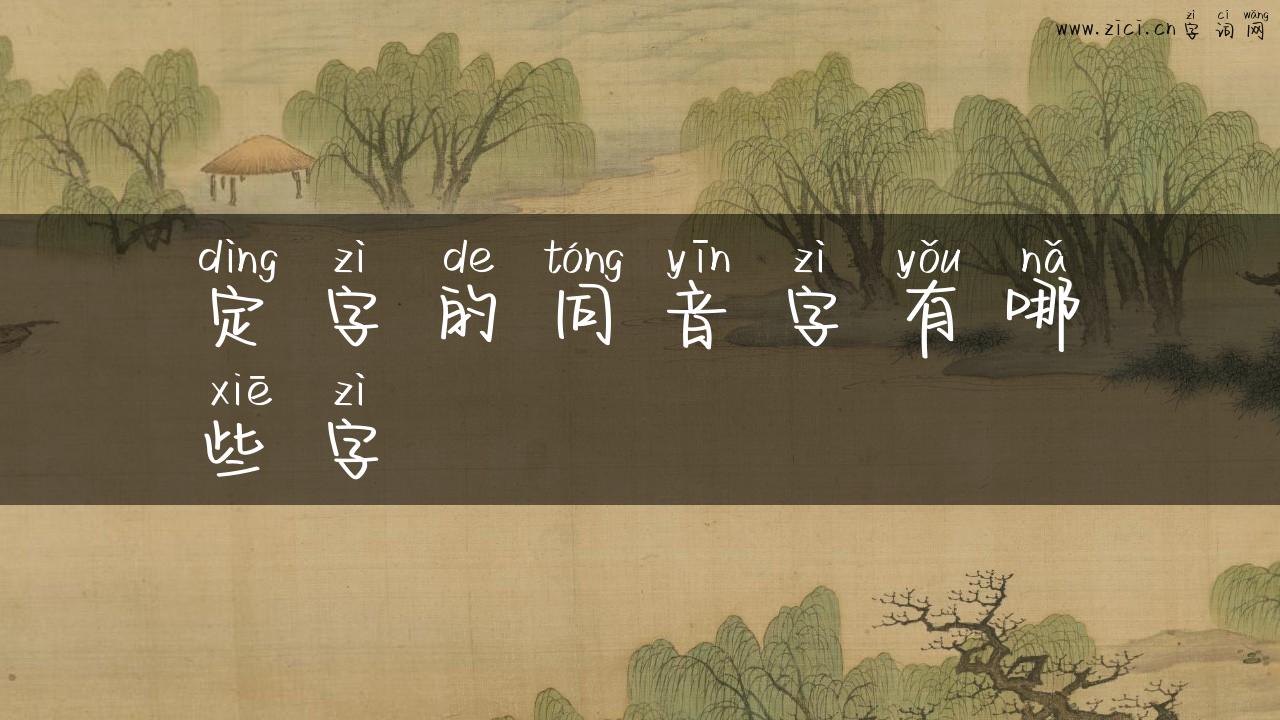 zì cí wǎng
www.zici.cn 字 词 网
dìng zì de tóng yīn zì yǒu nǎ
定 字 的 同 音 字 有 哪
xiē zì
些 字